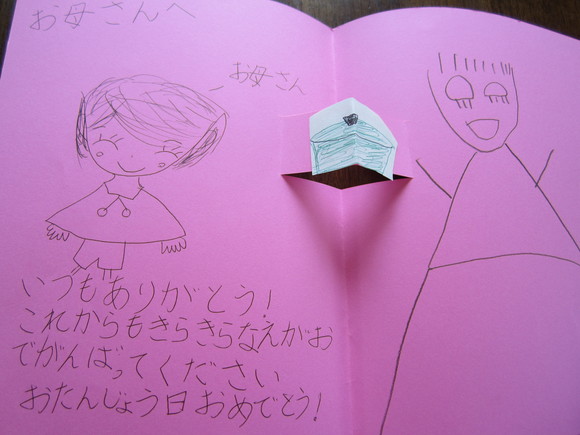 お母さんへ
お母さん
いつもありがとう！
これからもきらきらなえがお
でがんばってください
おたんじょう日おめでとう！